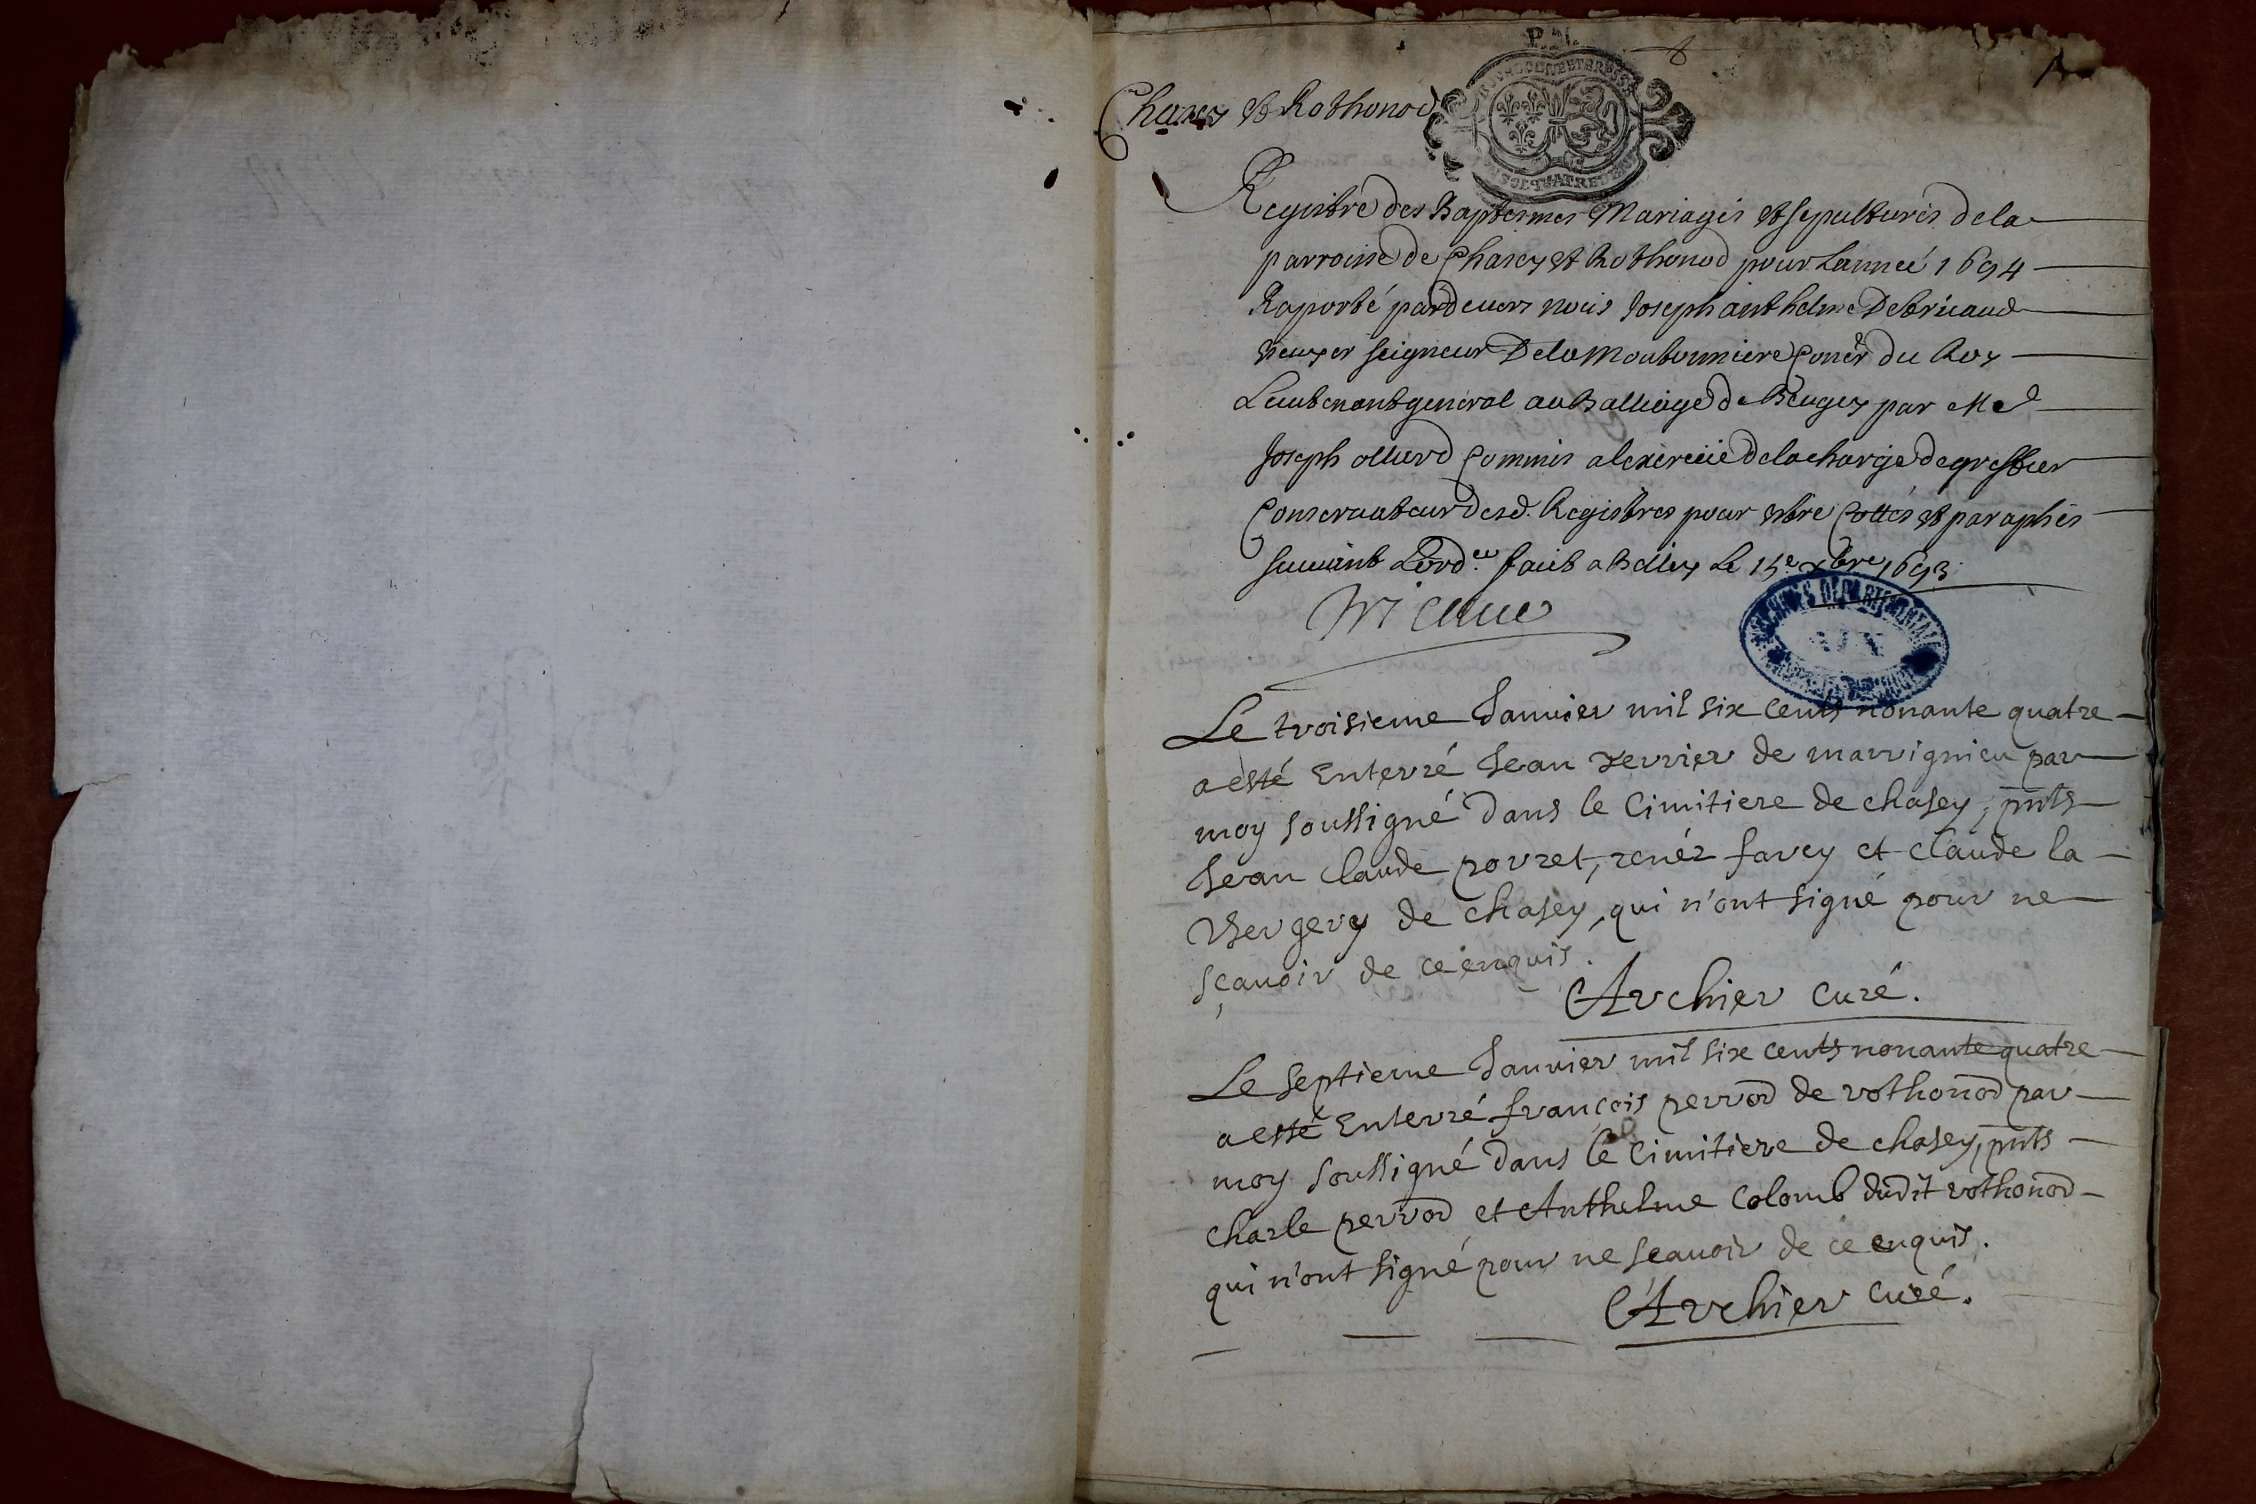 Chasey et Rothonod
Registre des Baptesmes Mariages et sepultures de la
parroisse de Chasey et Rothonod pour Lannée 1694
Raporté pardeuers nous Joseph anthelme
seigneur De la Conér du Roy
Lieutenant general au Balliage de Beugey par Me
Joseph commis a lexercice de la charge de greffier
Conseruateur desd. Registres pour estre Cottés et paraphés
suiuant Lord.ce faict a Belley Le 15e xbre 1693
Le troisieme Januier mil six cents nonante quatre
a esté Enterré Jean perrier de marrignieu par
moy soussigné dans le Cimitiere de chasey, pnts
Jean Claude porret, renér favey et Claude la
Bergery de chasey, qui n'ont signé pour ne
sçauoir de ce enquis.
Archier curé.
Le septieme Januier mil six cents nonante quatre
a esté Enterré françois perrod de rothonod par
moy soussigné dans le Cimitiere de chasey, pnts
charle perrod et Anthelme Colomb dudit rothonod
qui n'ont signé pour ne sçauoir de ce enquis.
Archier curé.